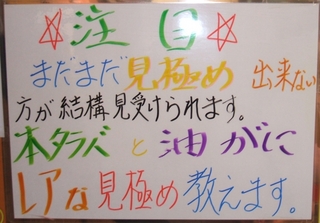 ☆注目☆
まだまだ見極め 出来ない
方が結構見受けられます。
本タラバと油がに
レアな見極め教えます。